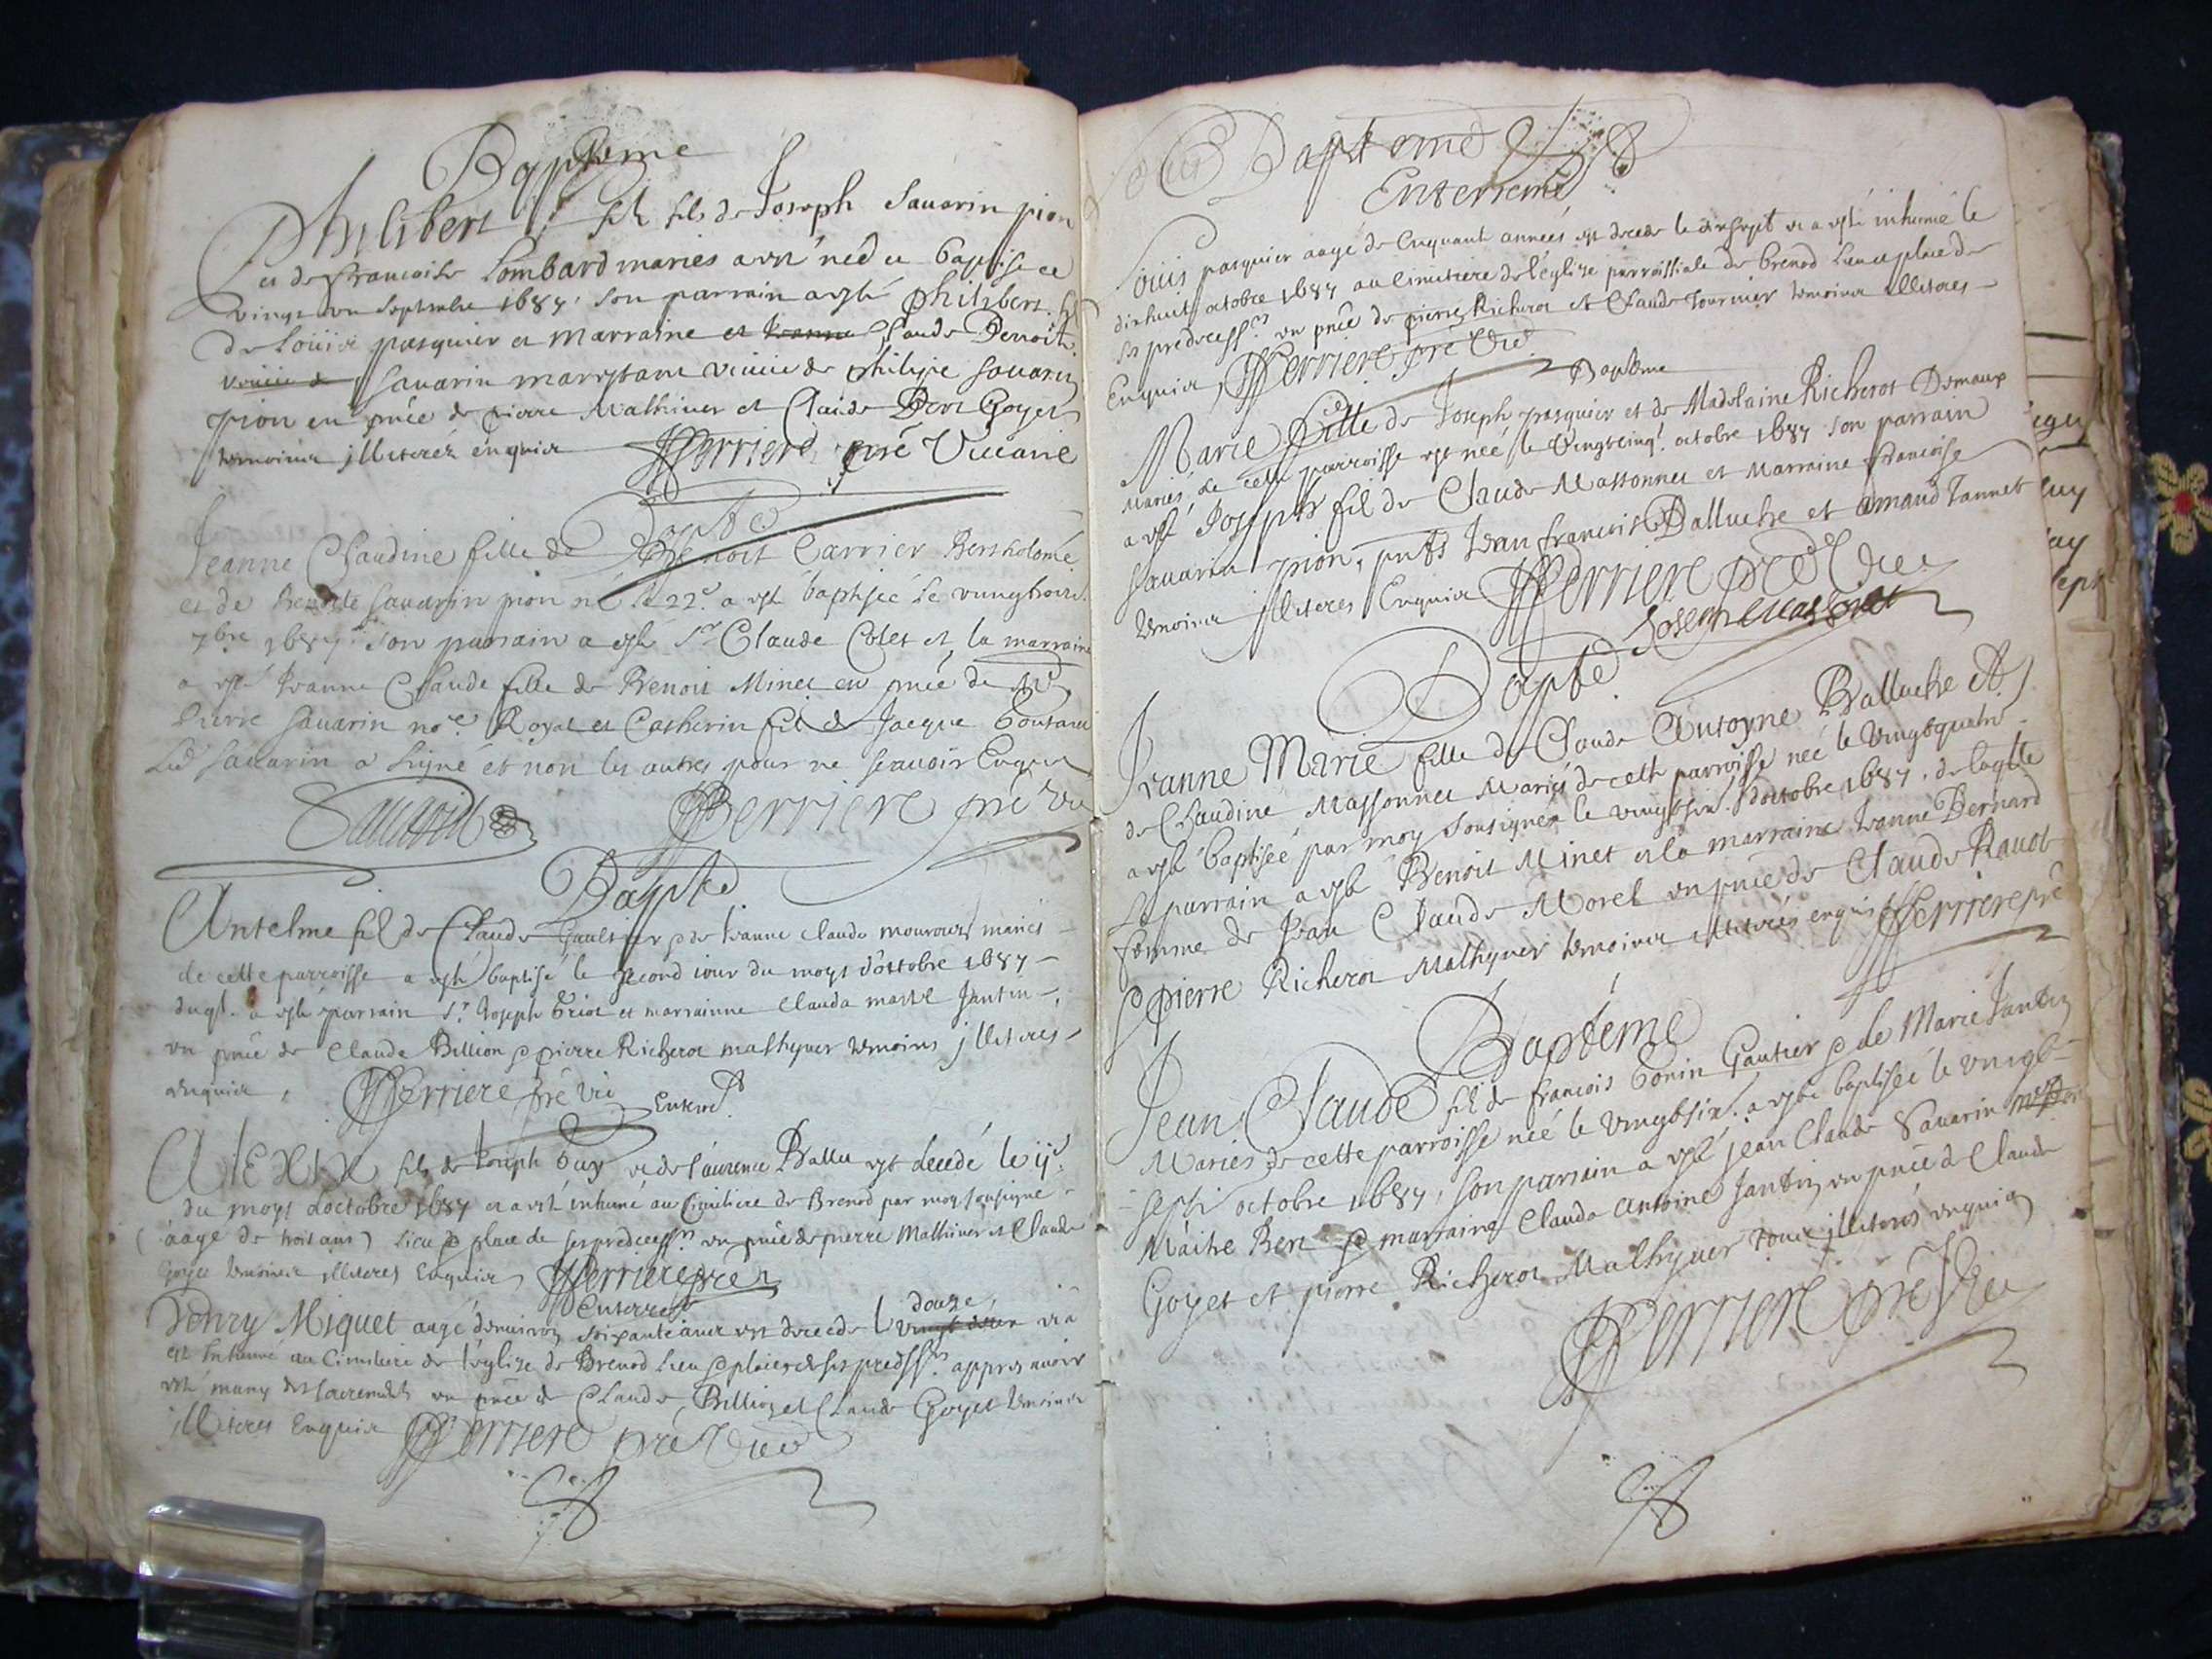 Bapteme
Philibert fils de Joseph Sauarin pion
et de Francoise Lombard mariés a esté né et baptisé ce
vingt un Septembre 1687. son parrain a esté philibert fil
de Louiis pasquier et marraine et Jeanne Claude Benoite
veuue de Sauarin marrastare veuue de philipe Sauarin
pion en pnce de pierre Mathiuer et Claude Bert Goyet
temoins jlliterez enquis JPerriere pre Viccaire
Bapte
Jeanne Claudine fille de Benoit Carrier Bertholomé
et de Benoite Sauarin pion né le 22e a esté baptisée le vingtrois
7bre 1687. son parrain a esté Sr Claude Colet et la marraine
a esté Jeanne Claude fille de Benoit Minet en pnce de Me
Pierre Sauarin nore Royal et Catherin fil de Jacque
Led Sauarin a signé et non les autres pour ne scauoir Enquis
Sauarin JPerriere pre Vic
Bapte
Antelme fil de Claude Gaultier & de Jeanne Claude mouroux mariés
de cette parroisse a esté baptisé le second iour du moys d'octobre 1687
duql. a esté parrain Sr Joseph Triot et marrainne Clauda Jantin
en pnce de Claude Billion & pierre Richerot mathyuer temoins jlliteres
enquis, JPerriere pre vic
Enterrt
Alexix fils de Joseph Guy et de Laurence Ballu est decedé le ije
du moys doctobre 1687 et a esté inhumé au Cimitiere de Brenod par moy sousigné
(aagé de trois ans) lieu & place de ses predecessrs en pnce de pierre Mathiuer et Claude
Goyet temoins jlliteres Enquis JPerriere pre
Enterret
Henry Miquet aagé denuiron soixante ans est decede l vingt douze et a
esté Inhumé au Cimitiere de l'eglize de Brenod Lieu & place de ses predssrs appres auoir
esté muny des sacrements en pnce de Claude Billion et Claude Goyet temoins
jlliteres Enquis JPerriere pre Vic
Bapteme
Enterreme
Louis pasquier aagé de Cinquante années est decede le disept et a esté inhumé le
dixhuit octobre 1687 au Cimitiere de l'eglize parroissiale de brenod Lieu et place de
ses predecessrs en pnce de pierre Richerot et Claude Tournier temoins illiteres
Enquis, JPerriere pre Vic
Bapteme
Marie fille de Joseph pasquier et de Madelaine Richerot Demaux
mariés de cette parroisse est née le Vingtcinqe. octobre 1687 son parrain
a esté Joseph fil de Claude Massonnet et Marraine francoise
Sauarin pion, pnts Jean francois Balluche et amand Jannet
temoins jlliteres Enquis JPerriere pre Vic
Joseph Massonet
Bapte
Jeanne Marie fille de Claude Antoyne Balluche et
de Claudine Massonnet Mariés de cette parroisse née le vingtquatre
a esté baptisée par moy sousigné le vingtsix. doctobre 1687. de laqlle
Le parrain a esté Benoit Minet et la marraine Jeanne Bernard
femme de Jean Claude Morel en pnce de Claude Rauot
& pierre Richerot Mathyuer temoins illiterés enquis JPerriere pre
Bapteme
Jean Claude fil de francois bonin Gautier & de Marie Jantin
Mariés de cette parroisse née le vingtsix. a esté baptiseé le vingt
sept octobre 1687, son parrain a esté jean Claude Sauarin
Maitre Bert & marraine Clauda Antoine Jantin en pnce de Claude
Goyet et pierre Richerot Mathyuer tous jlliterés enquis
JPerriere pre Vic